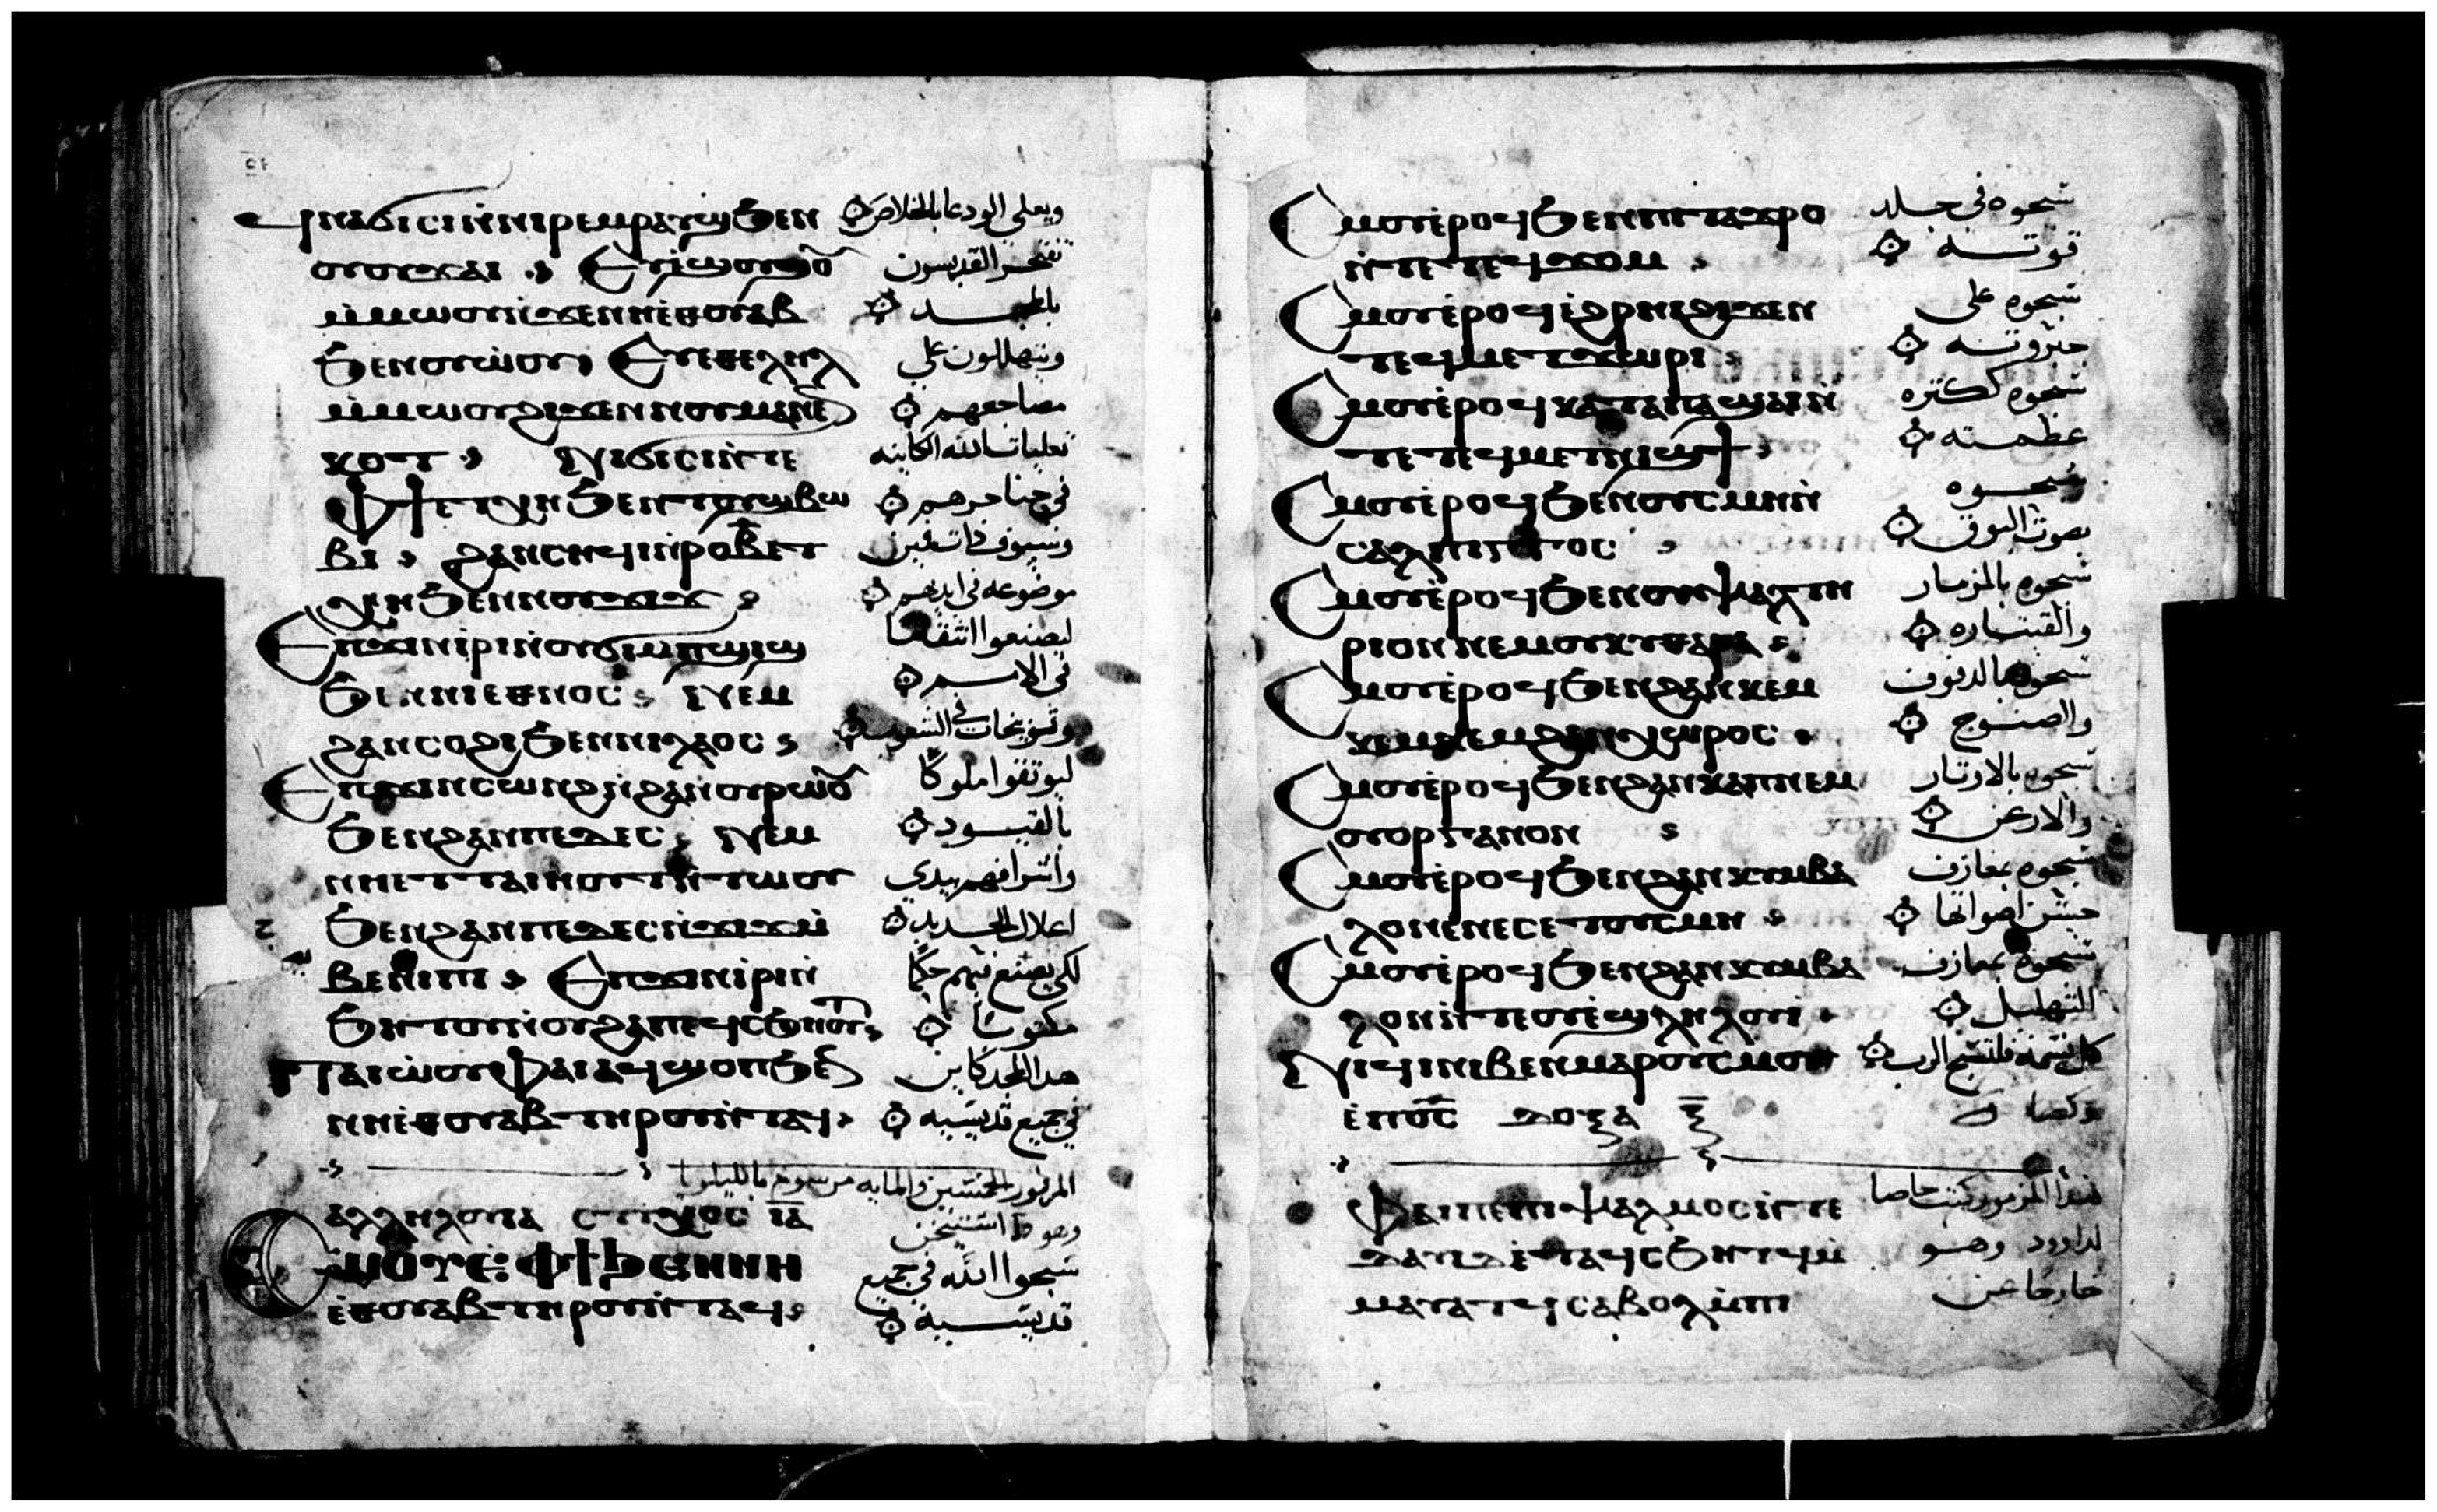 ϥⲛⲁϭⲓⲥⲓ ⲛ̀ⲛⲓⲣⲉⲙⲣⲁⲩϣ ϧⲉⲛ ويعلي الودعا بالخلاص
ⲟⲩⲟⲩϫⲁⲓ Ⲉⲩⲉ̀ϣⲟⲩϣⲟⲩ تفتخر القديسون
ⲙ̀ⲙⲱⲟⲩ ⲛ̀ϫⲉ ⲛⲏⲉ̅ⲑⲟⲩⲁⲃ بالمجد
ϧⲉⲛ ⲟⲩⲱ̀ⲟⲩ Ⲉⲩⲉⲑⲉⲗⲏⲗ ويتهللون علي
ⲙ̀ⲙⲱⲟⲩ ϩⲓϫⲉⲛ ⲛⲟⲩⲙⲁⲛ̀ⲉⲛ مضاجعهم
ⲕⲟⲧ Ⲛⲓϭⲓⲥⲓ ⲛ̀ⲧⲉ تعليات الله الكاينه
Ⲫϯ ⲉⲧⲭⲏ ϧⲉⲛ ⲧⲟⲩϣⲃⲱ في حناجرهم
ⲃⲓ ϩⲁⲛⲥⲏϥⲓ ⲛ̀ⲣⲟ ⲃ̅ ⲉⲩ وسيوف ذات فمين
ⲭⲏ ϧⲉⲛ ⲛⲟⲩϫⲓϫ موضوعه في ايديهم
Ⲉⲡϫⲓⲛⲓ̀ⲣⲓ ⲛ̀ⲟⲩϭⲓⲙⲡϣⲓϣ ليصنعوا انتقاما
ϧⲉⲛ ⲛⲓⲉⲑⲛⲟⲥ Ⲛⲉⲙ في الامم
ϩⲁⲛⲥⲟϩⲓ ϧⲉⲛ ⲛⲓⲗⲁⲟⲥ وتوبيخات في الشعوب
Ⲉⲡϫⲓⲛⲥⲱⲛϩ ⲛ̀ϩⲁⲛⲟⲩⲣⲱⲟⲩ ليوثقوا ملوكا
ϧⲉⲛ ϩⲁⲛⲡⲉⲇⲉⲥ Ⲛⲉⲙ بالقيود
ⲛⲏⲉⲧⲧⲁⲓⲏⲟⲩⲧ ⲛ̀ⲧⲱⲟⲩ واشرافهم بيدي
ϧⲉⲛ ϩⲁⲛⲡⲉⲇⲉⲥ ⲛ̀ϫⲓϫ ⲙ̀ اغلال الحديد
ⲃⲉⲛⲓⲡⲓ Ⲉⲡϫⲓⲛⲓ̀ⲣⲓ ⲛ̀ لكي يصنع بهم حكما
ϧⲏⲧⲟⲩ ⲛ̀ⲟⲩϩⲁⲡ ⲉϥⲥϧⲏⲟⲩⲧ مكتوبا
Ⲡⲁⲓⲱ̀ⲟⲩ ⲫⲁⲓ ⲁϥϣⲟⲡ ϧⲉⲛ هذا المجد كاين
ⲛⲏⲉ̅ⲑⲟⲩⲁⲃ ⲧⲏⲣⲟⲩ ⲛ̀ⲧⲁϥ في جميع قديسيه
المزمور الخمسين والمايه مرسوم بالليلويا
ⲁⲗⲗⲏⲗⲟⲩⲓⲁ ⲥⲧⲩⲭⲟⲥ ⲓ̅ⲁ̅
Ⲥⲙⲟⲩ ⲉ̀ Ⲫϯ ϧⲉⲛ ⲛⲏ سبحوا الله في جميع
ⲉ̅ⲑⲟⲩⲁⲃ ⲧⲏⲣⲟⲩ ⲛ̀ⲧⲁϥ قديسيه
Ⲥⲙⲟⲩ ⲉ̀ⲣⲟϥ ϧⲉⲛ ⲡⲓⲧⲁϫⲣⲟ سبحوه في جلد
ⲛ̀ⲧⲉ ⲧⲉϥϫⲟⲙ قوته
Ⲥⲙⲟⲩ ⲉ̀ⲣⲟϥ ⲉ̀ϩⲣⲏⲓ ϩⲓϫⲉⲛ سبحوه علي
ⲧⲉϥⲙⲉⲧϫⲱⲣⲓ جبروته
Ⲥⲙⲟⲩ ⲉ̀ⲣⲟϥ ⲕⲁⲧⲁ ⲡⲁϣⲁⲓ ⲛ̀ سبحوه ككثره
ⲧⲉ ⲧⲉϥⲙⲉⲧⲛⲓϣϯ عظمته
Ⲥⲙⲟⲩ ⲉ̀ⲣⲟϥ ϧⲉⲛ ⲟⲩⲥⲙⲏ ⲛ̀ سبحوه
ⲥⲁⲗⲡⲓⲅⲅⲟⲥ بصوت البوق
Ⲥⲙⲟⲩ ⲉ̀ⲣⲟϥ ϧⲉⲛ ⲟⲩⲯⲁⲗⲧⲏ سبحوه بالمزمار
ⲣⲓⲟⲛ ⲛⲉⲙ ⲟⲩⲕⲩⲑⲁⲣⲁ والقيثاره
Ⲥⲙⲟⲩ ⲉ̀ⲣⲟϥ ϧⲉⲛ ϩⲁⲛⲕⲉⲙ سبحوه بالدفوف
ⲕⲉⲙ ⲛⲉⲙ ϩⲁⲛⲭⲱⲣⲟⲥ والصنوج
Ⲥⲙⲟⲩ ⲉ̀ⲣⲟϥ ϧⲉⲛ ϩⲁⲛⲕⲁⲡ ⲛⲉⲙ سبحوه بالاوتار
ⲟⲩⲟⲣⲅⲁⲛⲟⲛ والارغن
Ⲥⲙⲟⲩ ⲉ̀ⲣⲟϥ ϧⲉⲛ ϩⲁⲛⲕⲩⲙⲃⲁ سبحوه بمعازف
ⲗⲟⲛ ⲉⲛⲉⲥⲉ ⲧⲟⲩⲥⲙⲏ حسن اصواتها
Ⲥⲙⲟⲩ ⲉ̀ⲣⲟϥ ϧⲉⲛ ϩⲁⲛⲕⲩⲙⲃⲁ سبحوه بمعازف
ⲗⲟⲛ ⲛ̀ⲧⲉ ⲟⲩⲉ̀ϣⲗⲏⲗⲟⲩⲓ التهليل
Ⲛⲓϥⲓ ⲛⲓⲃⲉⲛ ⲙⲁⲣⲟⲩⲥⲙⲟⲩ كل نسمه فلتسبح الرب
ⲉ̀ⲡⲟ̅ⲥ̅ ⲇⲟⲝⲁ
Ⲫⲁⲓ ⲡⲉ ⲡⲓⲯⲁⲗⲙⲟⲥ ⲛ̀ⲧⲉ هذا المزمور كتب خاصا
ⲇⲁⲩⲓⲇ ⲉ̀ⲧⲁϥⲥϧⲏⲧϥ ⲙ̀ لداوود وهو
ⲙⲁⲩⲁⲧϥ ⲥⲁⲃⲟⲗ ⲙ̀ⲡⲓ خارجا عن